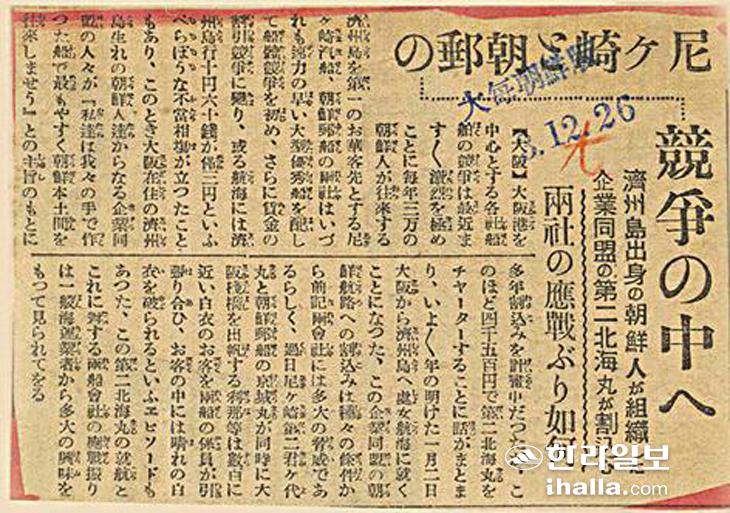 尼ケ崎と朝郵の
競爭の中へ
濟州島出身の朝鮮人が組織した
企業同盟の第二北海丸が割込み
兩社の應戰ぶり如何
大每朝鮮版
12.26
【大阪】大阪港を
中心とする各社船
舶の競爭は最近ま
すく激烈を極め
ことに每年三万の
朝鮮人が往來する
濟州島を第一のお華客先とする尼
ケ崎汽船、朝鮮郵船の兩社はいづ
れも速力の早い大型優秀船を配し
て船體競爭を初め、さらに賃金の
割引競爭に變り、或る航海には濟
州島行十円六十錢が僅三円といふ
べらぼうな不當相場が立つたこと
もあり、このとき大阪在住の濟州
島生れの朝鮮人達からなる企業同
盟の人々が『私達は我々の手で作
つた船で最もやすく朝鮮本土間を
往來しませう』との主旨のもとに
多年割込みを計畫中だつた、こ
のほど四千五百円で第二北海丸を
チャーターすることに話がまとま
り、いよく年の明けた一月二日
大阪から濟州島へ處女航海に就く
ことになつた、この企業同盟の朝
鮮航路への割込みは種々の條件か
ら前記兩會社には多大の脅威であ
るらしく、過日尼ケ崎第二君ケ代
丸と朝鮮郵船の京城丸が同時に大
阪棧橋を出帆する刹那等は數百に
近い白衣のお客を兩船の係員が引
張り合ひ、お客の中には晴れの白
衣を破られるといふエピソードも
あつた、この第二北海丸の就航と
これに對する兩船會社の應戰振り
は一般海運業者から多大の興味を
もつて見られてをる
한라일보
ihalla.com